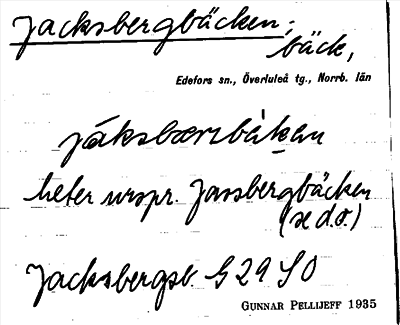 Jacksbergbäcken;
bäck,
Edefors sn., Överluleå tg., Norrb. län
jáksbærbäkən
heter urspr. Jassbergbäcken
(se d.o.)
Jacksbergsb. G29 SO
GUNNAR PELLIJEFF 1935